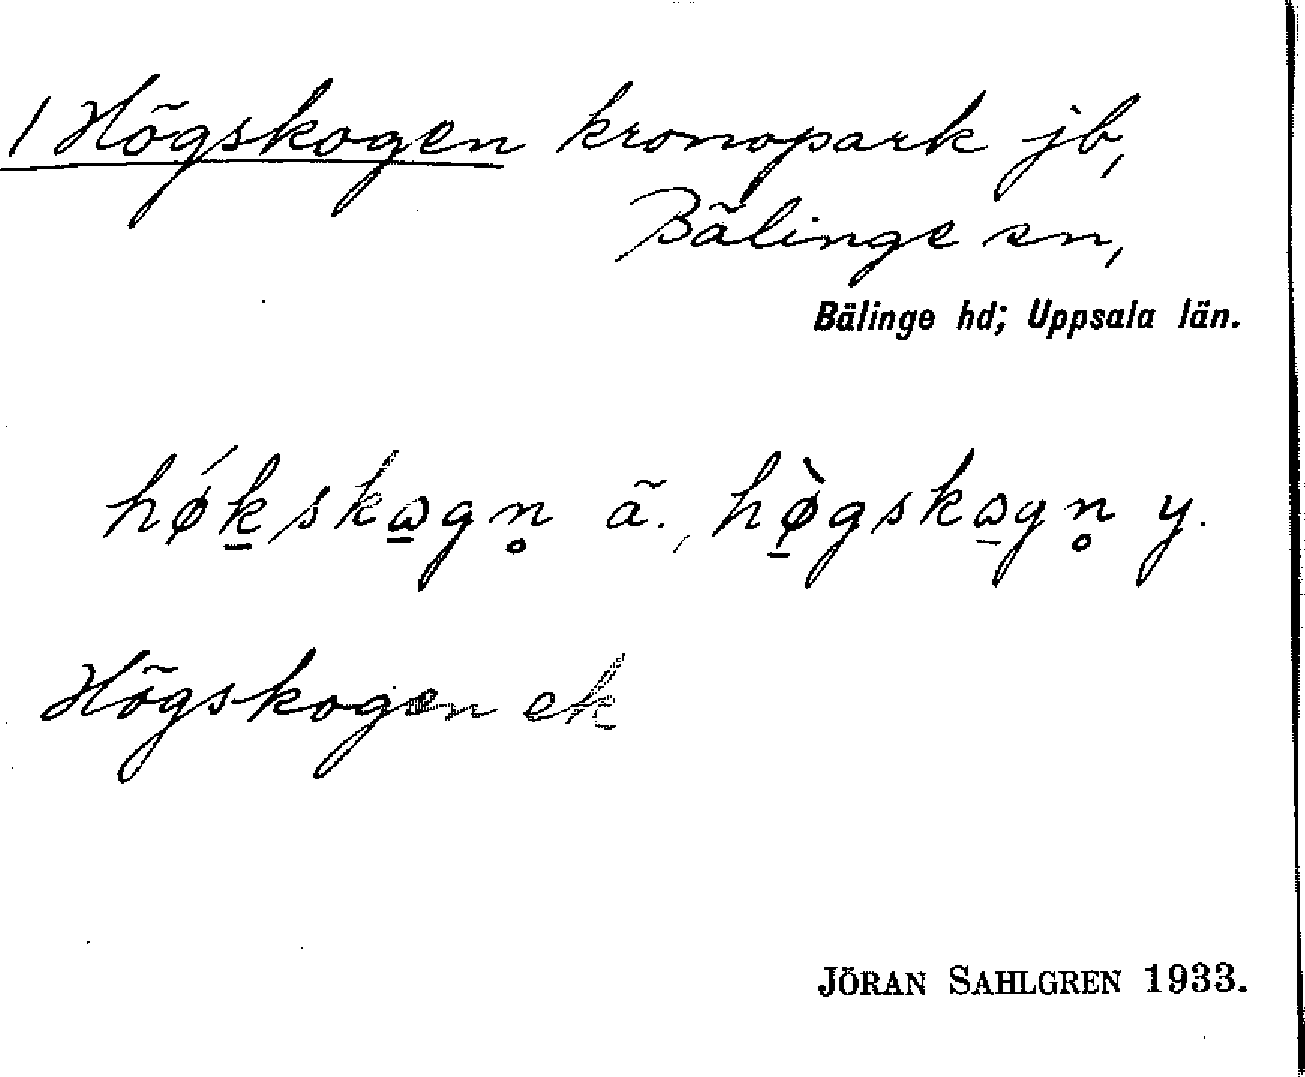 1 Högskogen kronopark jb,
Bälinge sn,
Bälinge hd; Uppsala län.
hǿk̲skɷ̲gn̥ ä., hø̲̀gskɷ̲gn̥ y.
Högskogen ek
JÖRAN SAHLGREN 1933.